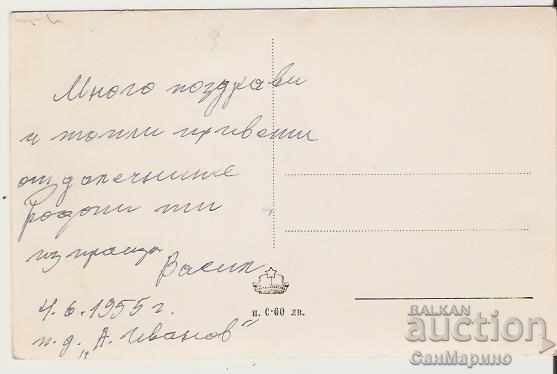 Много поздрави
и топли привети
от далечните
Родопи ти
изпраща
Васил
4.6.1955 г.
п.д. "А. Иванов"
ц. 0·60 лв.
BALKAN
auction
СанМарино